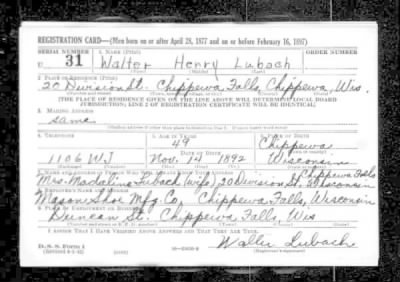 REGISTRATION CARD—(Men born on or after April 28, 1877 and on or before February 16, 1897)
SERIAL NUMBER 1. NAME (Print) ORDER NUMBER
U 31 Walter Henry Lubach
(First) (Middle) (Last)
2. PLACE OF RESIDENCE (Print)
20 Division St. Chippewa Falls, Chippewa, Wis.
(THE PLACE OF RESIDENCE GIVEN ON THE LINE ABOVE WILL DETERMINE LOCAL BOARD
JURISDICTION; LINE 2 OF REGISTRATION CERTIFICATE WILL BE IDENTICAL)
3. MAILING ADDRESS
same
4. TELEPHONE 5. AGE IN YEARS 6. PLACE OF BIRTH
49 Chippewa
DATE OF BIRTH
1106 WJ Nov. 14 1892 Wisconsin
7. NAME AND ADDRESS OF PERSON WHO WILL ALWAYS KNOW YOUR ADDRESS
Chippewa Falls
Mrs. Madaline Lubach (wife) 20 Division St. Wisconsin
8. EMPLOYER'S NAME AND ADDRESS
Mason Shoe Mfg. Co, Chippewa Falls, Wisconsin
9. PLACE OF EMPLOYMENT OR BUSINESS
Duncan St. Chippewa Falls, Wis
I AFFIRM THAT I HAVE VERIFIED ABOVE ANSWERS AND THAT THEY ARE TRUE.
D. S. S. Form 1
Walter Lubach
(Registrant's signature)